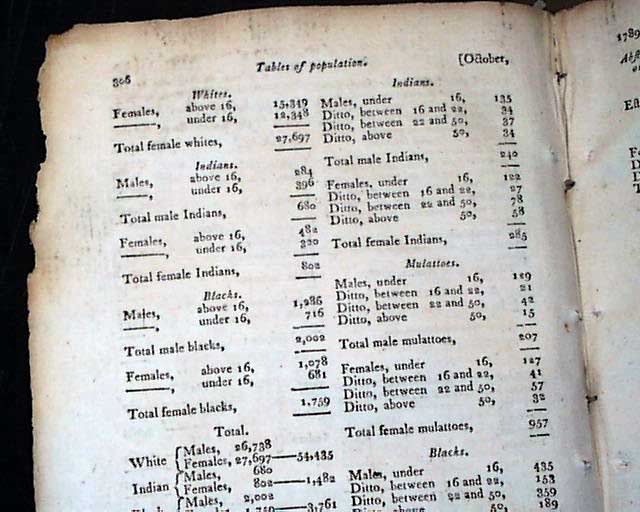 306
Tables of population.
[October,
Whites.
Females, above 16, 15,349
———, under 16, 12,348
Total female whites, 27,697
Indians.
Males, above 16, 284
———, under 16, 396
Total male Indians, 680
Females, above 16, 482
———, under 16, 320
Total female Indians, 802
Blacks.
Males, above 16, 1,286
———, under 16, 716
Total male blacks, 2,002
Females, above 16, 1,078
———, under 16, 681
Total female blacks, 1,759
Total.
White { Males, 26,738
Females, 27,697——54,435
Indian { Males, 680
Females, 802——1,482
Males, 2,002
1,759——3,761
Indians.
Males, under 16, 135
Ditto, between 16 and 22, 34
Ditto, between 22 and 50, 37
Ditto, above 50, 34
Total male Indians, 240
Females, under 16, 122
Ditto, between 16 and 22, 27
Ditto, between 22 and 50, 78
Ditto, above 50, 58
Total female Indians, 285
Mulattoes.
Males, under 16, 129
Ditto, between 16 and 22, 21
Ditto, between 22 and 50, 42
Ditto, above 50, 15
Total male mulattoes, 207
Females, under 16, 127
Ditto, between 16 and 22, 41
Ditto, between 22 and 50, 57
Ditto, above 50, 32
Total female mulattoes, 957
Blacks.
Males, under 16, 435
Ditto, between 16 and 22, 153
Ditto, between 22 and 50, 359
Ditto, above 50, 189
1789